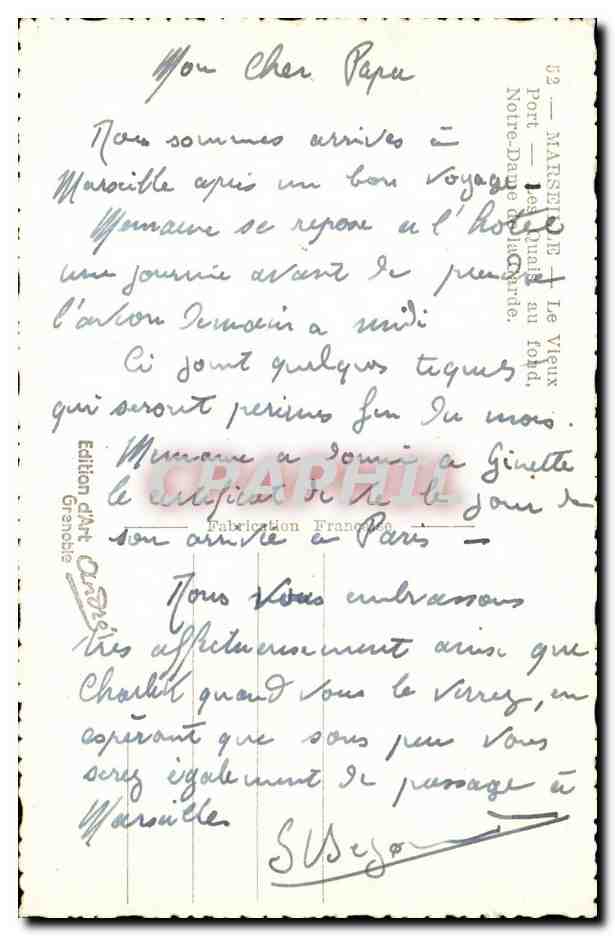 Mon Cher Papa
Nous sommes arrivés à
Marseille après un bon voyage
Memaine se repose à l'hotel
une journée avant de prendre
l'avion demain a midi
Ci joint quelques tiques
qui seront perimes fin du mois.
Memaine a donné a Ginette
le certificat de vie le jour de
son arrivée à Paris —
Nous vous embrassons
très affectueusement ainsi que
quand vous le verrez, en
espèrant que sous peu vous
serez également de passage à
Marseilles
52 — MARSEILLE — Le Vieux
Port — Les Quais au fond,
Notre-Dame de la Garde.
Edition d'Art
André
Grenoble
Fabrication Française
CPAPHIL